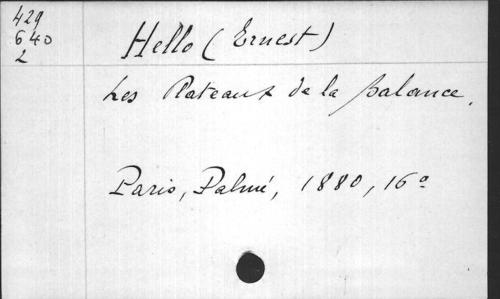 429
640
L
Hello (Ernest)
Les Plateaux de la balance.
Paris, Palmé, 1880, 16º